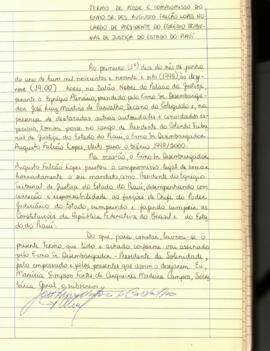 TERMO DE POSSE E COMPROMISSO DO
EXMO. SR. DES. AUGUSTO FALCÃO LOPES NO
CARGO DE PRESIDENTE DO EGRÉGIO TRIBU-
NAL DE JUSTIÇA DO ESTADO DO PIAUÍ.
Ao primeiro (1º) dia do mês de junho
do ano de hum mil novecentos e noventa e oito (1998), às dezeno-
ve (19:00) horas, no Salão Nobre do Palácio da Justiça,
perante o Egrégio Plenário, presidido pelo Exmo. Sr. Desembarga-
dor José Luiz Martins de Carvalho, Decano do Colegiado e, na
presença de destacadas outras autoridades e convidados es-
peciais, tomou posse no cargo de Presidente do Colendo Tribunal
de Justiça, do Estado do Piauí, o Exmo. Sr. Desembargador
Augusto Falcão Lopes, eleito para o biênio 1998/2000.
Na ocasião, o Exmo. Sr. Desembargador
Augusto Falcão Lopes prestou o compromisso legal de exercer
honradamente o seu mandato, como Presidente do Egrégio
Tribunal de Justiça do Estado do Piauí, desempenhando com
correção e responsabilidade as funções de Chefe do Poder
Judiciário do Estado, cumprindo e fazendo cumprir as
Constituições da República Federativa do Brasil e do Esta-
do do Piauí.
Do que, para constar, lavrou-se o
presente Termo, que lido e achado conforme vai assinado
pelo Exmo. Sr. Desembargador - Presidente da Solenidade,
pelo empossado e pelos presentes que assim o desejarem. Eu,
Simpson Fortes de Cerqueira Madeira Campos, Secre-
tária Geral, o subscrevi.